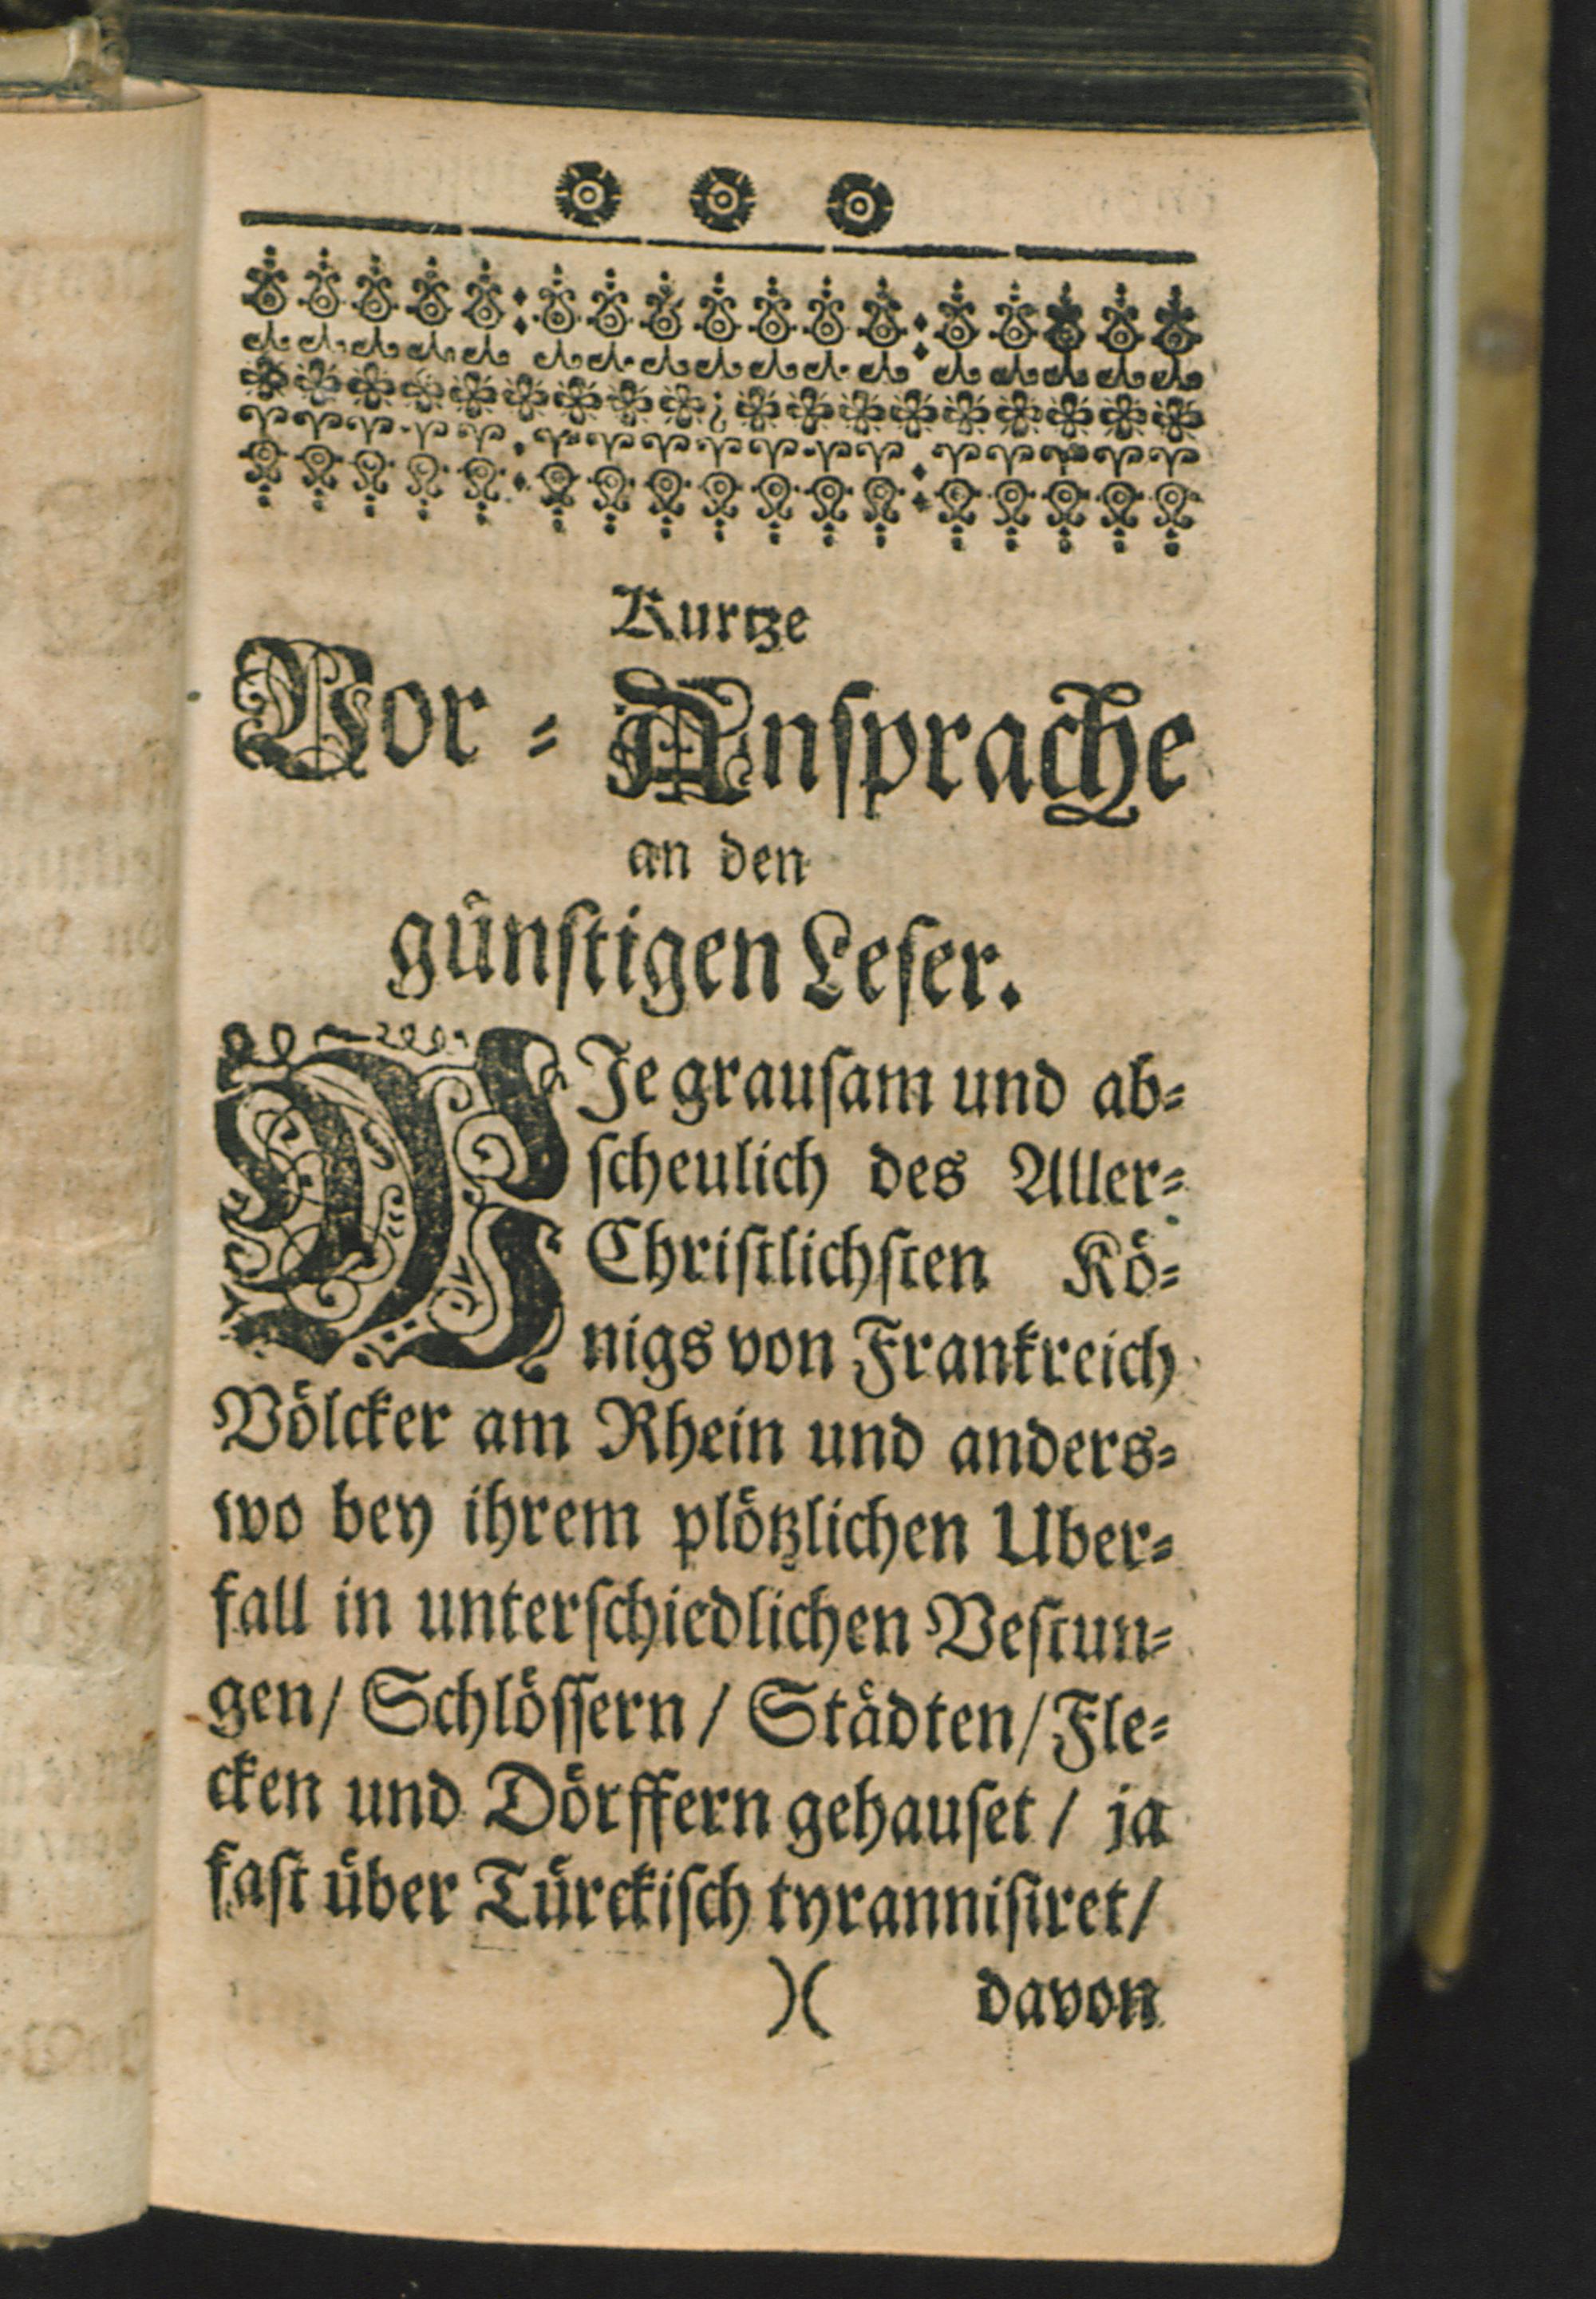 Kurtze
Vor⸗Ansprache
an den
günſtigen Leſer.
WJe grauſam und ab⸗
ſcheulich des Aller⸗
Chriſtlichſten Kö⸗
nigs von Frankreich
Völcker am Rhein und anders⸗
wo bey ihrem plötzlichen Uber⸗
fall in unterſchiedlichen Veſtun⸗
gen/ Schlöſſern/ Städten/ Fle⸗
cken und Dörffern gehauſet/ ja
faſt über Türckiſch tyranniſiret/
)( davon